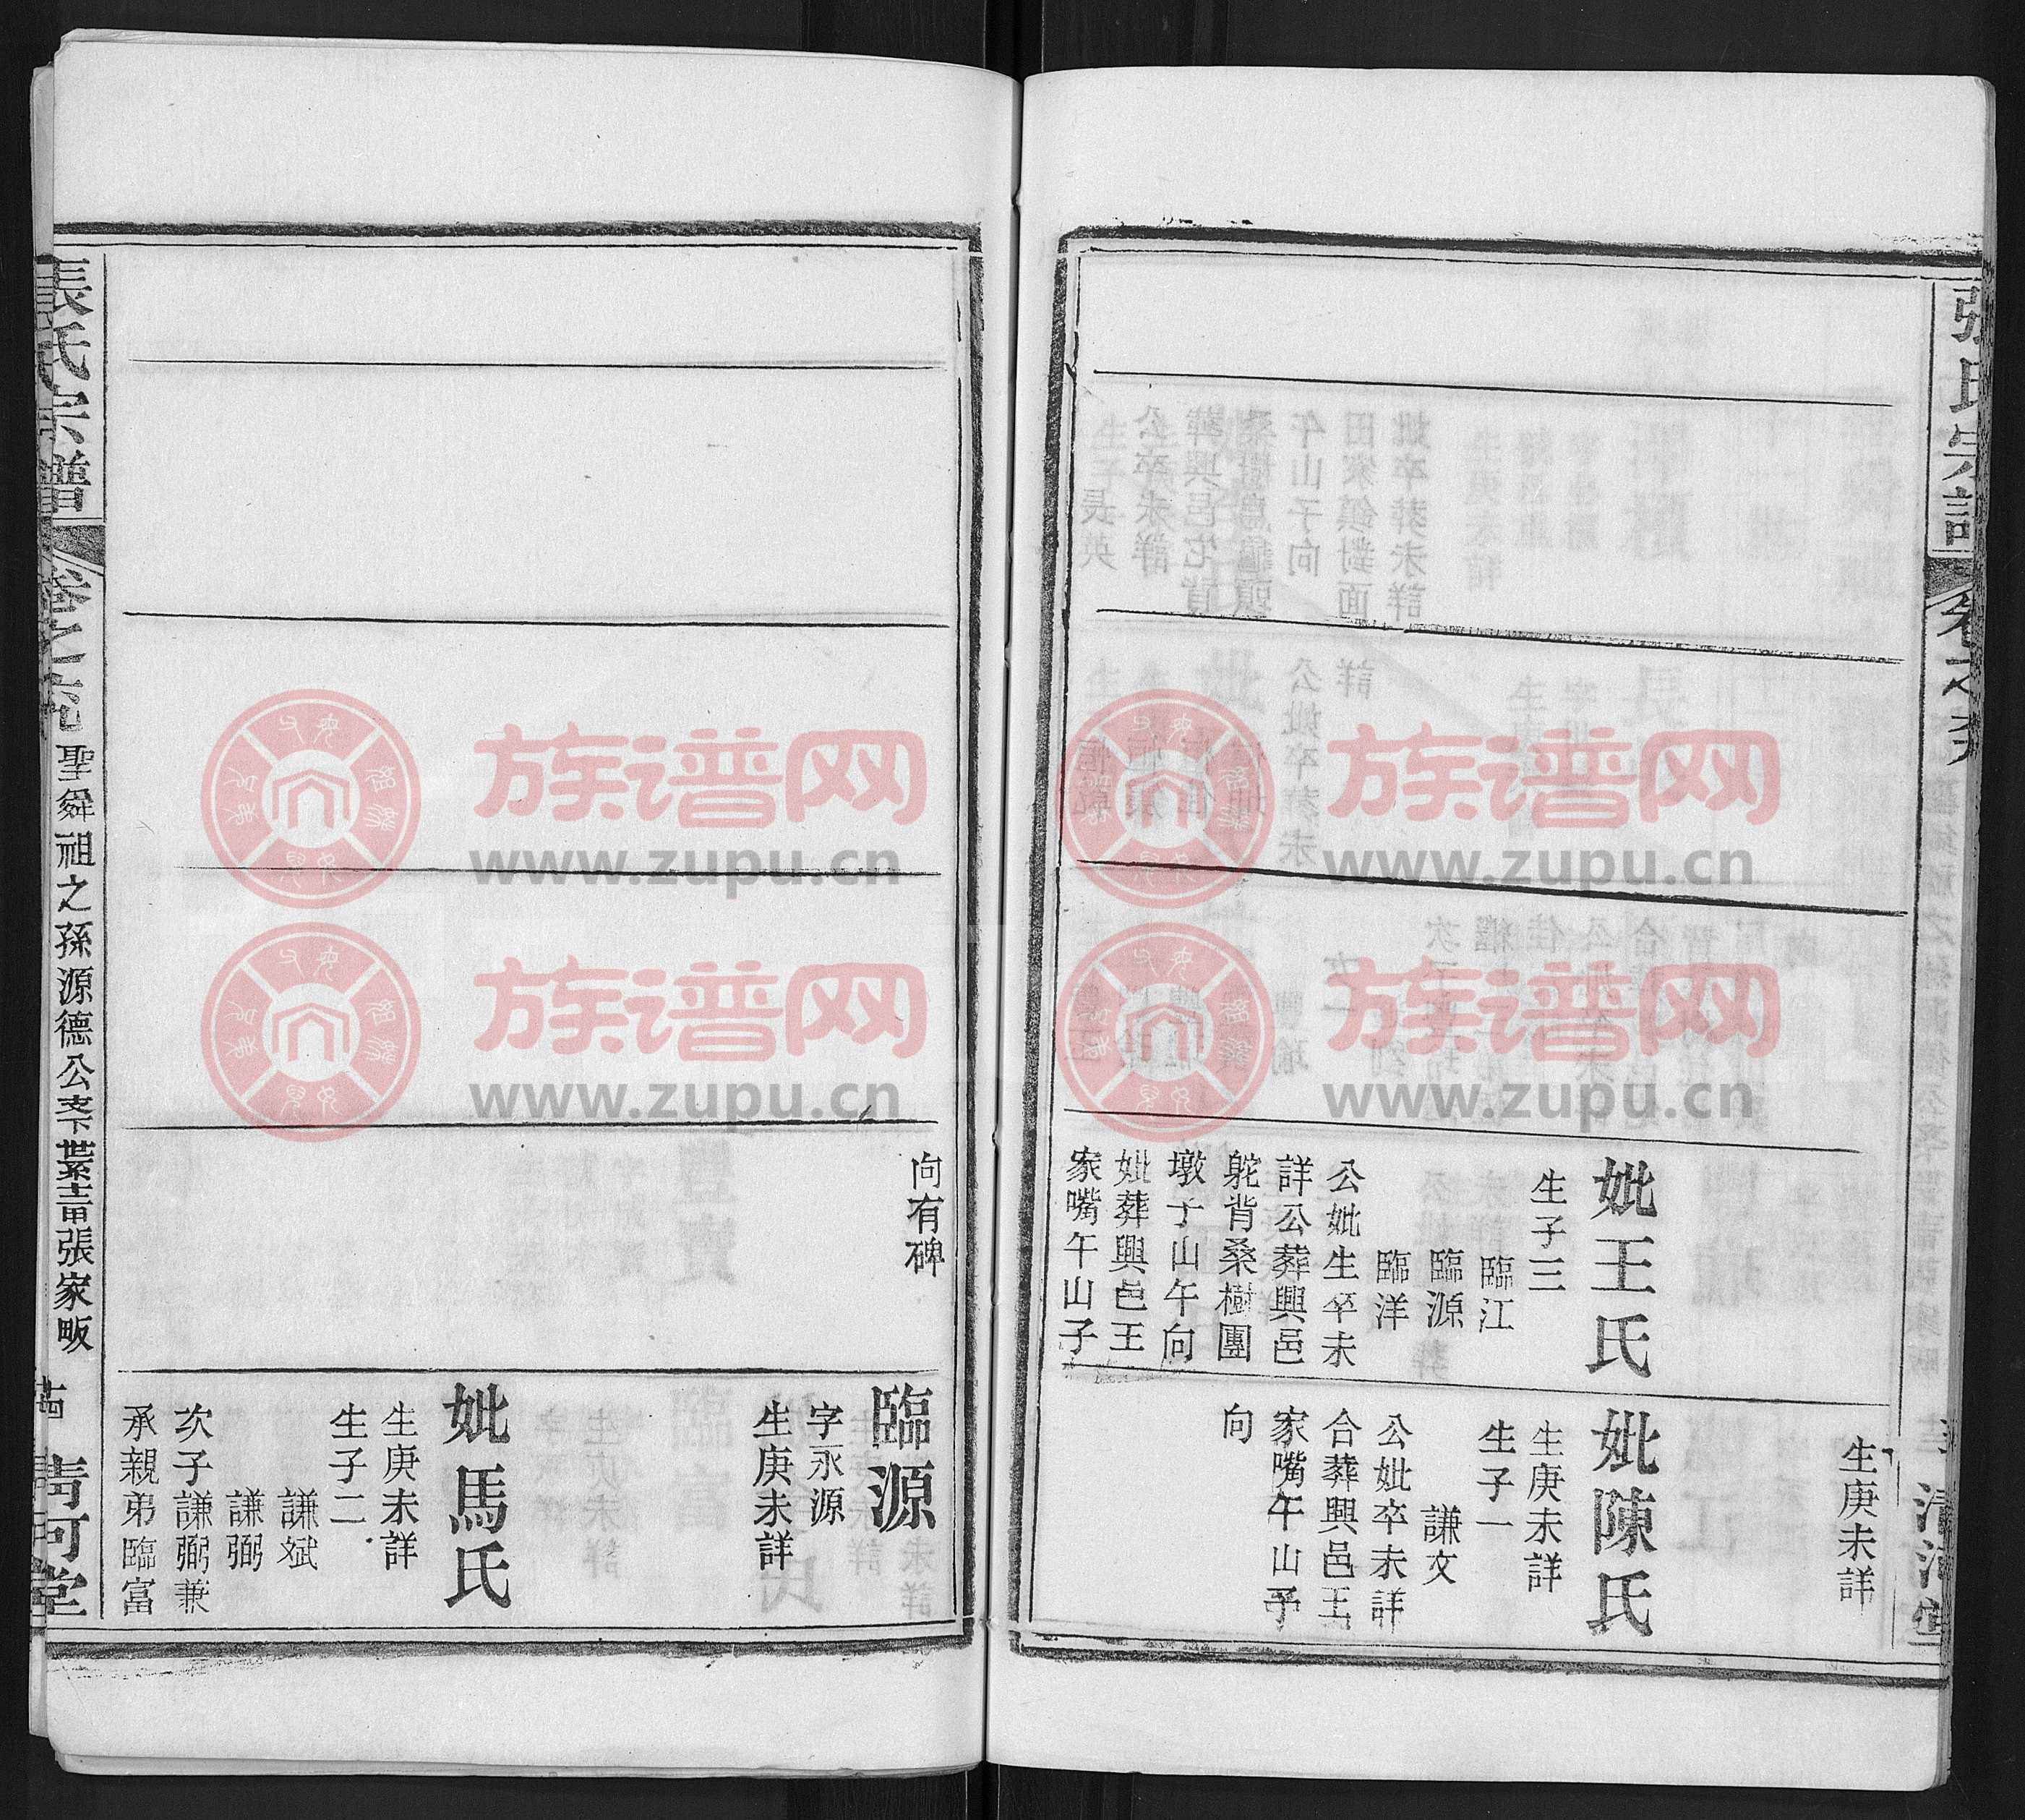 張氏宗譜
妣王氏
生子三
臨江
臨源
臨洋
公妣生卒未
詳公葬興邑
駝背桑樹團
墩子山午向
妣葬興邑王
家嘴午山子
生庚未詳
妣陳氏
生庚未詳
生子一
謙文
公妣卒未詳
合葬興邑王
家嘴午山子
向
清河堂
向有碑
臨源
字永源
生庚未詳
妣馬氏
生庚未詳
生子二
謙斌
謙弼
次子謙弼兼
承親弟臨富
張氏宗譜
聖舜祖之孫源德公支下世系
張家畈
清河堂
族谱网
www.zupu.cn
族谱网
www.zupu.cn
族谱网
www.zupu.cn
族谱网
www.zupu.cn